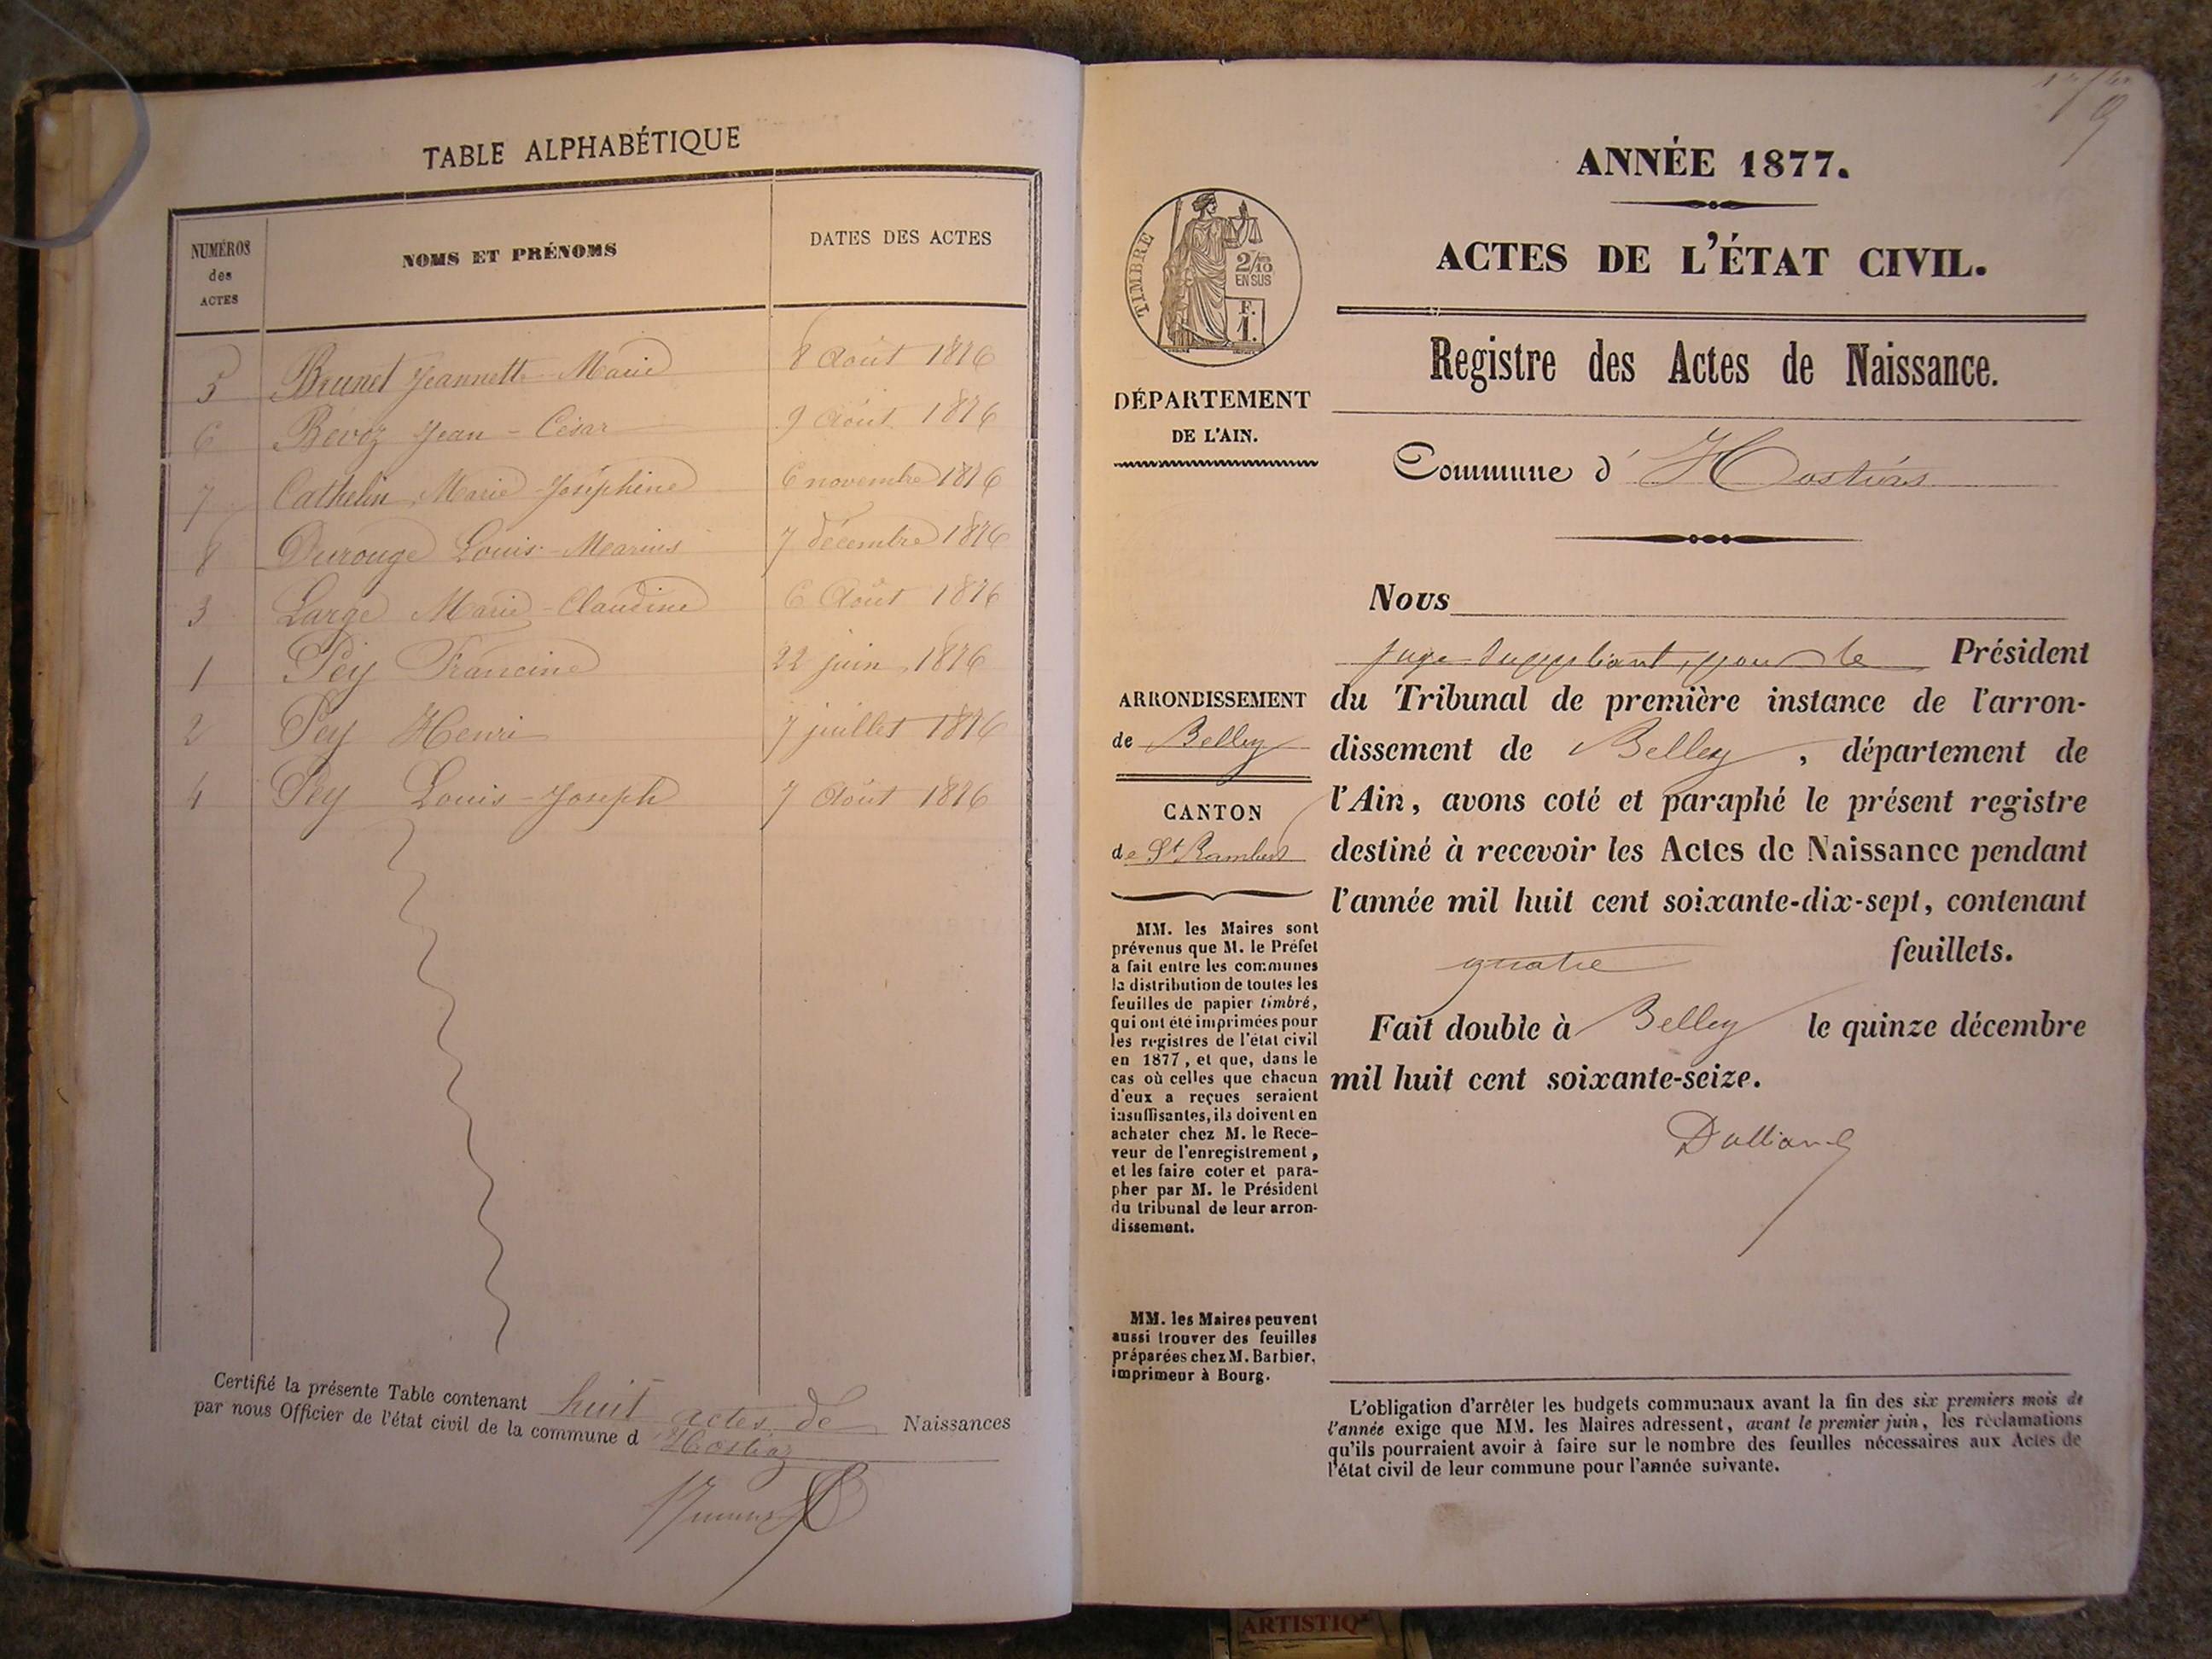 TABLE ALPHABÉTIQUE
NUMÉROS
des
ACTES
NOMS ET PRÉNOMS
DATES DES ACTES
5 Brunet Jeannette Marie 8 Août 1876
6 Bévoz Jean-César 9 Août 1876
7 Cathelin Marie Joséphine 6 novembre 1876
8 Durouge Louis-Marius 7 décembre 1876
3 Large Marie-Claudine 6 Août 1876
1 Pey Francine 22 juin 1876
2 Pey Henri 7 juillet 1876
4 Pey Louis-Joseph 7 Août 1876
Certifié la présente Table contenant huit actes de Naissances
par nous Officier de l'état civil de la commune d'Hostiaz
ANNÉE 1877.
ACTES DE L'ÉTAT CIVIL.
Registre des Actes de Naissance.
Commune d'Hostias
TIMBRE
2/10
EN SUS
F.
1.
DÉPARTEMENT
DE L'AIN.
ARRONDISSEMENT
de Belley
CANTON
de St Rambert
MM. les Maires sont
prévenus que M. le Préfet
a fait entre les communes
la distribution de toutes les
feuilles de papier timbré,
qui ont été imprimées pour
les registres de l'état civil
en 1877, et que, dans le
cas où celles que chacun
d'eux a reçues seraient
insuffisantes, ils doivent en
acheter chez M. le Rece-
veur de l'enregistrement,
et les faire coter et para-
pher par M. le Président
du tribunal de leur arron-
dissement.
MM. les Maires peuvent
aussi trouver des feuilles
préparées chez M. Barbier,
imprimeur à Bourg.
Nous
juge suppléant, pour le Président
du Tribunal de première instance de l'arron-
dissement de Belley, département de
l'Ain, avons coté et paraphé le présent registre
destiné à recevoir les Actes de Naissance pendant
l'année mil huit cent soixante-dix-sept, contenant
quatre feuillets.
Fait double à Belley le quinze décembre
mil huit cent soixante-seize.
L'obligation d'arrêter les budgets communaux avant la fin des six premiers mois de
l'année exige que MM. les Maires adressent, avant le premier juin, les réclamations
qu'ils pourraient avoir à faire sur le nombre des feuilles nécessaires aux Actes de
l'état civil de leur commune pour l'année suivante.
ARTISTIQ